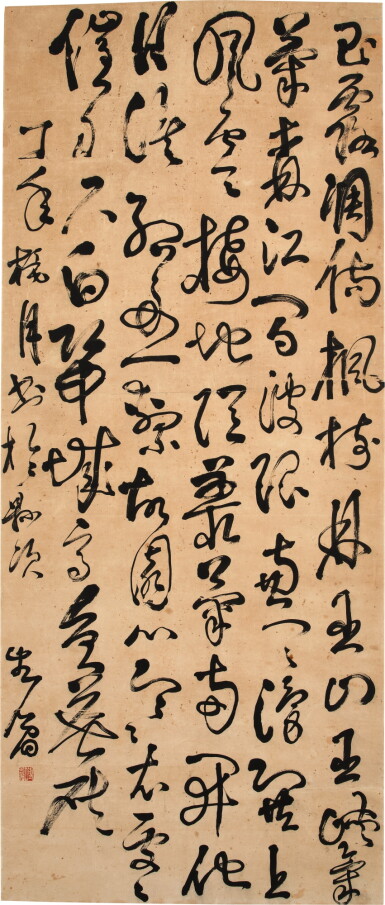 玉露凋傷楓樹林巫山巫峽氣
蕭森江間波浪兼天湧塞上
風雲接地陰叢菊兩開他
日淚孤舟一繫故園心寒衣處處
催刀尺白帝城高急暮砧
丁月書於